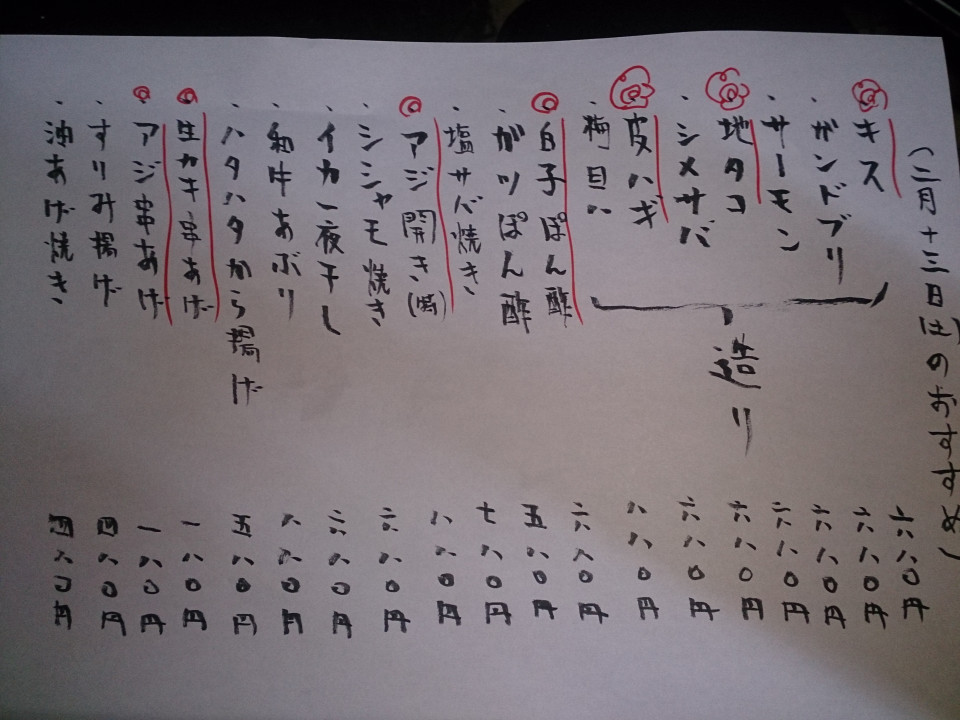 (三月十三日(土)のおすすめ)
キス 六八〇円
・ガンドブリ 六八〇円
・サーモン 六八〇円
地タコ 六八〇円
・シメサバ 六八〇円
皮ハギ 六八〇円
・梅貝 八八〇円
造り
白子ぽん酢 六八〇円
・ガツぽん酢 五八〇円
・塩サバ焼き 七八〇円
アジ開き 八八〇円
・シシャモ焼き 六八〇円
・イカ一夜干し 六八〇円
・和牛あぶり 八八〇円
・ハタハタから揚げ 五八〇円
生カキ串あげ 一八〇円
アジ串あげ 一八〇円
・すりみ揚げ 四八〇円
・油あげ焼き 四八〇円